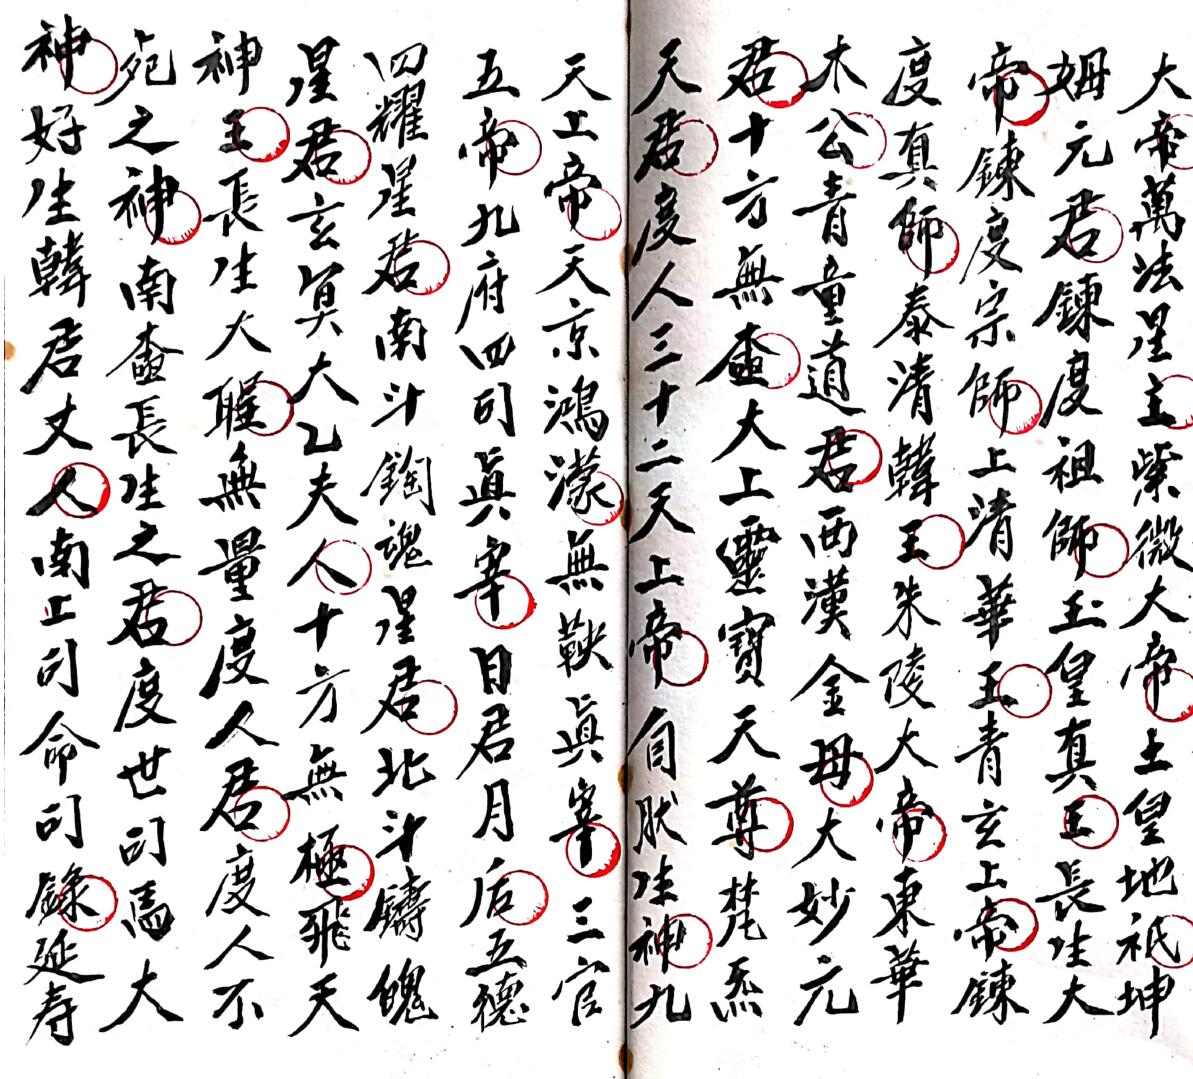 大帝萬法星主紫微大帝土皇地祇坤
姆元君鍊度祖師玉皇真王長生大
帝鍊度宗師上清華王青玄上帝鍊
度真師泰清韓王朱陵大帝東華
木公青童道君西漢金母大妙元
君十方無壼大上靈寶天尊梵炁
天君度人三十二天上帝自肰生神九
天上帝天京鴻濛無鞅眞宰三官
五帝九府四司眞宰日君月后五德
四耀星君南斗鍧魂星君北斗鑄魄
星君玄冥大乙夫人十方無極飛天
神王長生大聖無量度人君度人不
死之神南壼長生之君度世司馬大
神好生韓君丈人南上司命司錄延寿